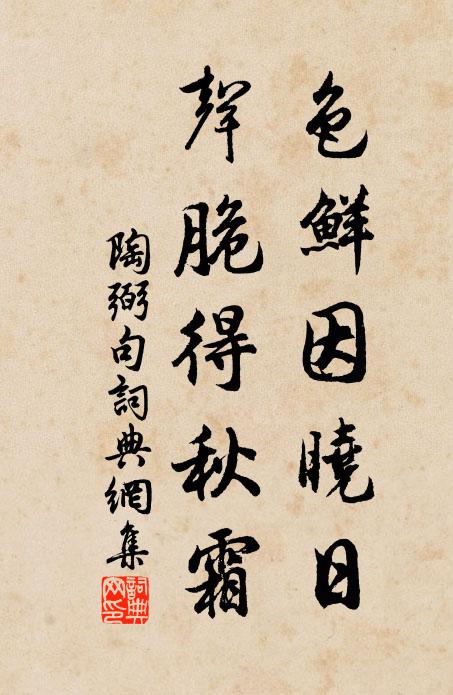 色鮮因曉日
聲脆得秋霜
陶弼句詞典網集
詞典網印